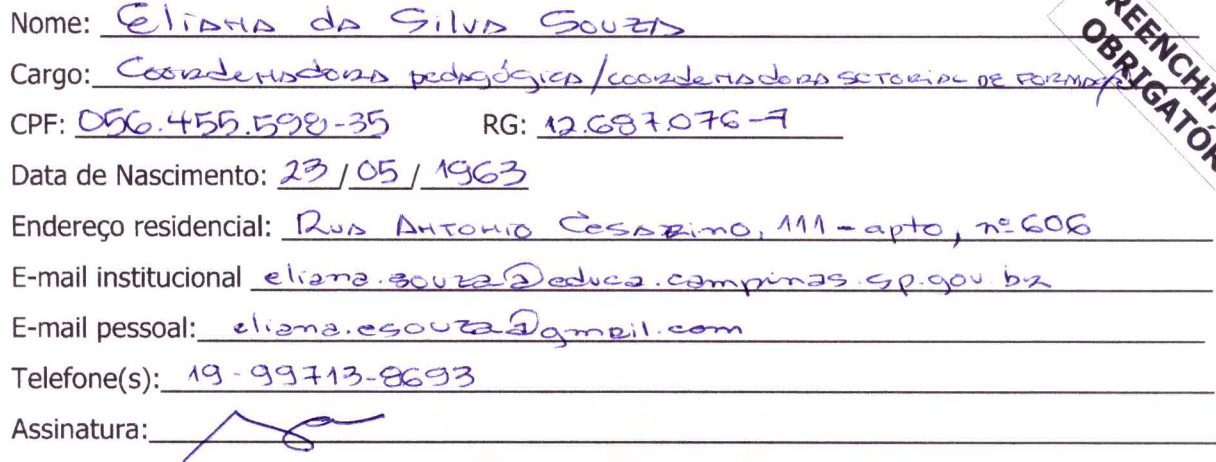 Nome: Eliana da Silva Souza
Cargo: Coordenadora pedagógica/coordenadora SETORIAL DE FORMAÇÃO
CPF: 056.455.598-35 RG: 12.687.076-7
Data de Nascimento: 23/05/1963
Endereço residencial: Rua Antonio Cesarino, 111 - apto, nº 606
E-mail institucional eliana.souza@educa.campinas.sp.gov.br
E-mail pessoal: eliana.esouza@gmail.com
Telefone(s): 19-99713-8693
Assinatura: